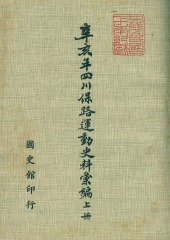 辛亥年四川保路運動史料彙編上冊
國史館印行